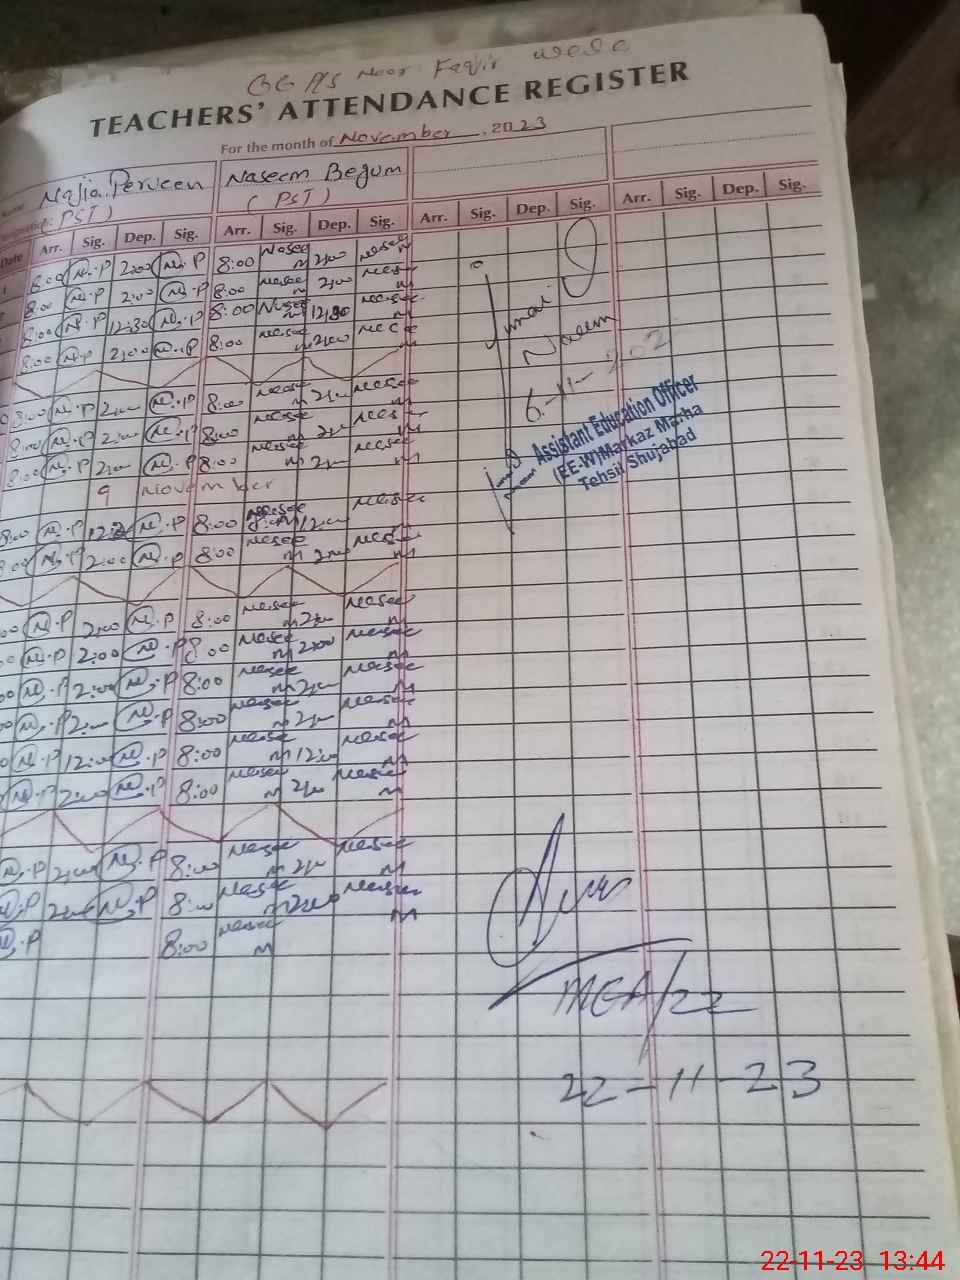 GGPS Noor Faqir wala
TEACHERS' ATTENDANCE REGISTER
For the month of November . 2023
Name Najia Perveen Naseem Begum
(PST) (PST)
Date Arr. Sig. Dep. Sig. Arr. Sig. Dep. Sig. Arr. Sig. Dep. Sig. Arr. Sig. Dep. Sig.
8:00 N.P 2:00 N.P 8:00 Naseem 2:00 Naseem
8:00 N.P 2:00 N.P 8:00 Naseem 2:00 Naseem
8:00 N.P 12:30 N.P 8:00 Naseem 12:30 Naseem
8:00 N.P 2:00 N.P 8:00 Naseem 2:00 Naseem
8:00 N.P 2:00 N.P 8:00 Naseem 2:00 Naseem
8:00 N.P 2:00 N.P 8:00 Naseem 2:00 Naseem
8:00 N.P 2:00 N.P 8:00 Naseem 2:00 Naseem
9 November
8:00 N.P N.P 8:00 Naseem 12:00 Naseem
8:00 N.P 2:00 N.P 8:00 Naseem 2:00 Naseem
00 N.P 2:00 N.P 8:00 Naseem 2:00 Naseem
00 N.P 2:00 N.P 8:00 Naseem 2:00 Naseem
00 N.P 2:00 N.P 8:00 Naseem 2:00 Naseem
00 N.P 2:00 N.P 8:00 Naseem 2:00 Naseem
00 N.P 12:00 N.P 8:00 Naseem 12:00 Naseem
N.P 2:00 N.P 8:00 Naseem 2:00 Naseem
N.P 2:00 N.P 8:00 Naseem 2:00 Naseem
N.P 2:00 N.P 8:00 Naseem 2:00 Naseem
N.P 8:00 Naseem
Junaid
Naeem
6-11-202
Assistant Education Officer
(EE-W)Markaz Marha
Tehsil Shujabad
MEA/22
22-11-23
22-11-23 13:44